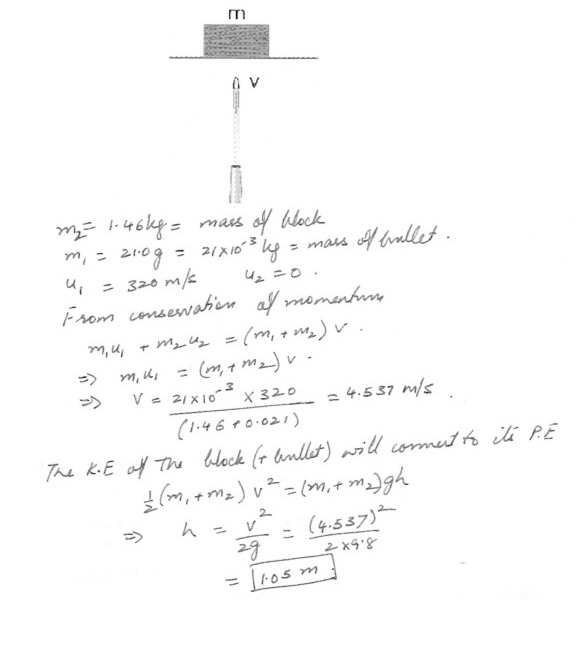 m
v
m₂ = 1.46kg = mass of block
m₁ = 21.0g = 21×10⁻³ kg = mass of bullet.
u₁ = 320 m/s u₂ = 0.
From conservation of momentum
m₁u₁ + m₂u₂ = (m₁ + m₂) v.
⇒ m₁u₁ = (m₁ + m₂) v.
⇒ v = 21×10⁻³ × 320 / (1.46 + 0.021) = 4.537 m/s.
The K.E of The block (+ bullet) will convert to its P.E
½ (m₁ + m₂) v² = (m₁ + m₂)gh
⇒ h = v² / 2g = (4.537)² / 2×9.8
= 1.05 m.